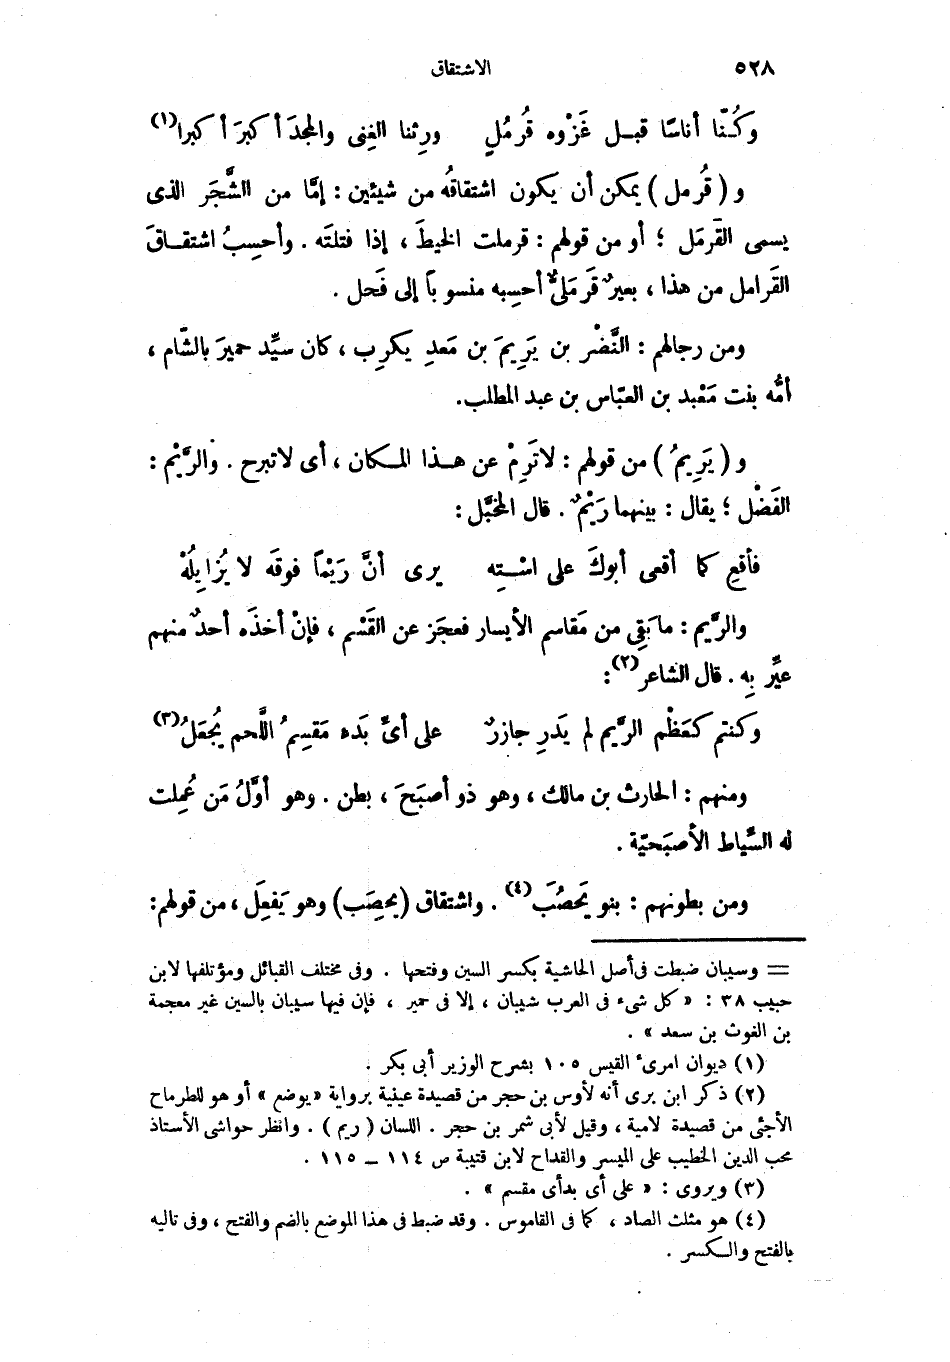 ٥٢٨ الاشتقاق
وكُنّا أناسًا قبل غَزْوه قُرمُلٍ ورِثنا الغِنى والمجدَ أكبرَ أكبرا(١)
و ( قُرمل ) يمكن أن يكون اشتقاقُه من شيئين : إمَّا من الشَّجَر الذى
يسمى القَرمَل ؛ أو من قولهم : قرملت الخيطَ ، إذا فتلتَه . وأحسِبُ اشتقاقَ
القَرامل من هذا ، بعيرٌ قَرمَلىٌّ أحسِبه منسوباً إلى فَحل .
ومن رجالهم : النَّضْر بن يَرِيمَ بن مَعدِ يكرِب ، كان سيِّد حميرَ بالشّام ،
أمُّه بنت مَعْبد بن العبّاس بن عبد المطلب.
و ( يَرِيمُ ) من قولهم : لا تَرِمْ عن هذا المكان ، أى لا تبرح . والرَّيْم :
الفَضْل ؛ يقال : بينهما رَيْمٌ . قال المخبَّل :
فأقعِ كما أقعى أبوكَ على اسْتِه يرى أنَّ رَيْمًا فوقَه لا يُزايِلُهْ
والرَّيم : ما بَقِى من مَقاسم الأيسار فعجَز عن القَسْم ، فإنْ أخذَه أحدٌ منهم
عيِّر بِه . قال الشاعر(٢):
وكنتم كعَظْم الرَّيم لم يَدَرِ جازرٌ على أىِّ بَدَه مَقسِمُ اللَّحم يُجعَلُ(٣)
ومنهم : الحارث بن مالك ، وهو ذو أصبَحَ ، بطن . وهو أوَّلُ مَن عُمِلت
له السِّياط الأصبَحيّة .
ومن بطونهم : بنو يَحصُبَ(٤) . واشتقاق (يحصِب) وهو يَفعِل ، من قولهم:
= وسيبان ضبطت فى أصل الحاشية بكسر السين وفتحها . وفى مختلف القبائل ومؤتلفها لابن
حبيب ٣٨ : « كل شىء فى العرب شيبان ، إلا فى حمير ، فإن فيها سيبان بالسين غير معجمة
بن الغوث بن سعد » .
(١) ديوان امرئ القيس ١٠٥ بشرح الوزير أبى بكر .
(٢) ذكر ابن برى أنه لأوس بن حجر من قصيدة عينية برواية «يوضع » أو هو للطرماح
الأجئى من قصيدة لامية ، وقيل لأبى شمر بن حجر . اللسان ( ريم ) . وانظر حواشى الأستاذ
محب الدين الخطيب على الميسر والقداح لابن قتيبة ص ١١٤ – ١١٥ .
(٣) ويروى : « على أى بدأى مقسم » .
(٤) هو مثلث الصاد ، كما فى القاموس . وقد ضبط فى هذا الموضع بالضم والفتح ، وفى تاليه
بالفتح والكسر .